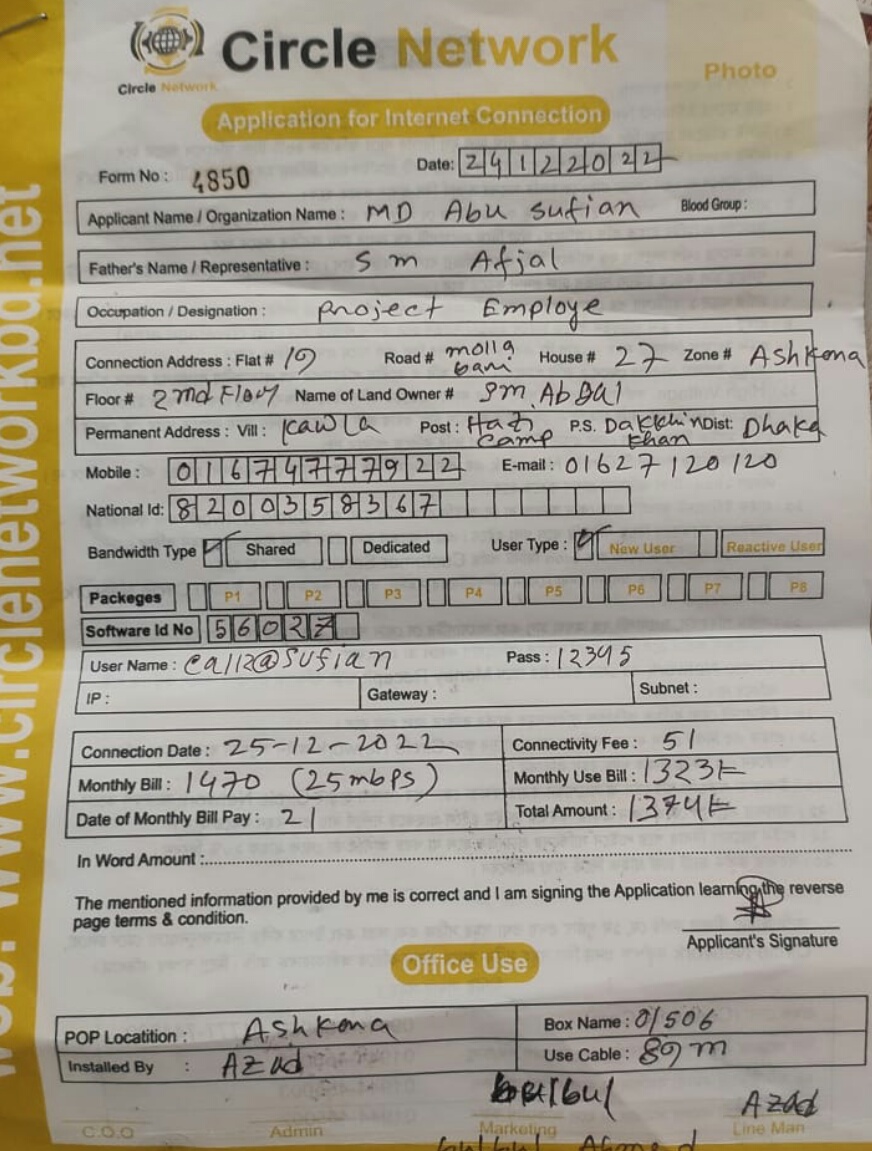 Circle Network
Circle Network
Photo
Application for Internet Connection
Form No : 4850 Date: 24122022
Applicant Name / Organization Name : MD Abu Sufian Blood Group :
Father's Name / Representative : S m Afjal
Occupation / Designation : Project Employe
Connection Address : Flat # Road # molla bari House # 27 Zone # Ashkona
Floor # 2nd Floor Name of Land Owner # Sm. Abdal
Permanent Address : Vill : Kawla Post : Hazi Camp P.S. Dakkhin khan Dist: Dhaka
Mobile : 01674777922 E-mail : 01627120120
National Id: 8200358367
Bandwidth Type Shared Dedicated User Type : New User Reactive User
Packeges P1 P2 P3 P4 P5 P6 P7 P8
Software Id No 56027
User Name : Pass : 12345
IP : Gateway : Subnet :
Connection Date : 25-12-2022 Connectivity Fee : 51
Monthly Bill : 1470 (25mbps) Monthly Use Bill : 1323
Date of Monthly Bill Pay : 21 Total Amount : 1374
In Word Amount :
The mentioned information provided by me is correct and I am signing the Application learning the reverse
page terms & condition.
Applicant's Signature
Office Use
POP Locatition : Ashkona Box Name : 01506
Installed By : Azad Use Cable : 89m
Bulbul Azad
C.O.O Admin Marketing Line Man
Ahmed
web: www.circlenetworkbd.net